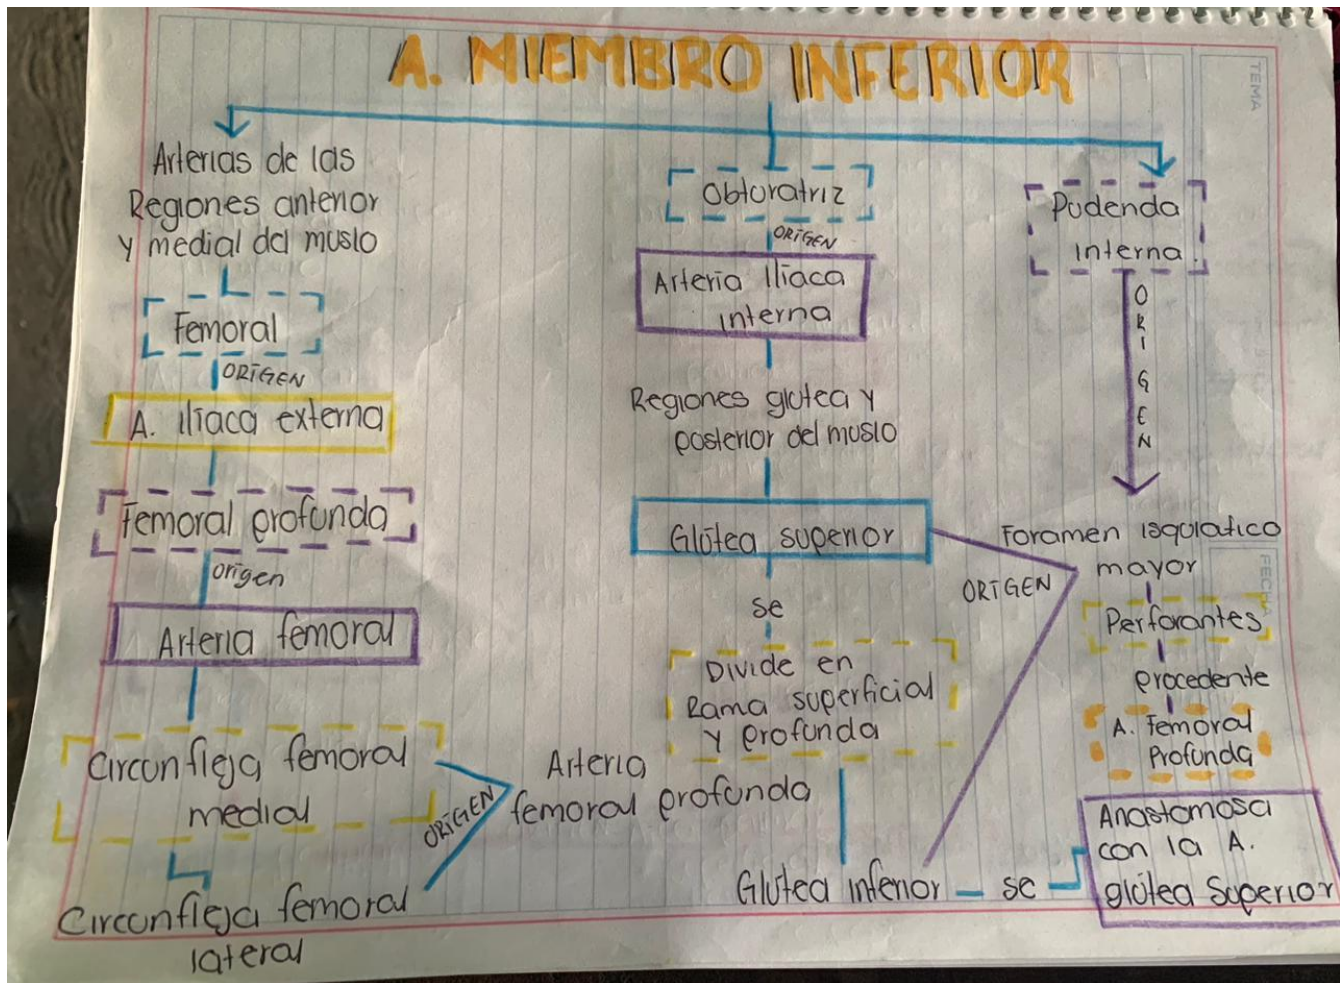 A. MIEMBRO INFERIOR
TEMA
Arterias de las
Regiones anterior
y medial del muslo
Femoral
ORIGEN
A. Iliaca externa
Femoral profunda
origen
Arteria femoral
Circunfleja femoral
medial
Circunfleja femoral
lateral
ORIGEN
Arteria
femoral profunda
Obturatriz
ORIGEN
Arteria Iliaca
interna
Regiones glutea y
posterior del muslo
Glútea superior
se
Divide en
Rama superficial
y profunda
Glútea inferior
se
Anastomosa
con la A.
glútea Superior
ORIGEN
Pudenda
interna.
ORIGEN
Foramen isquiatico
mayor
FECHA
Perforantes
procedente
A. Femoral
Profunda